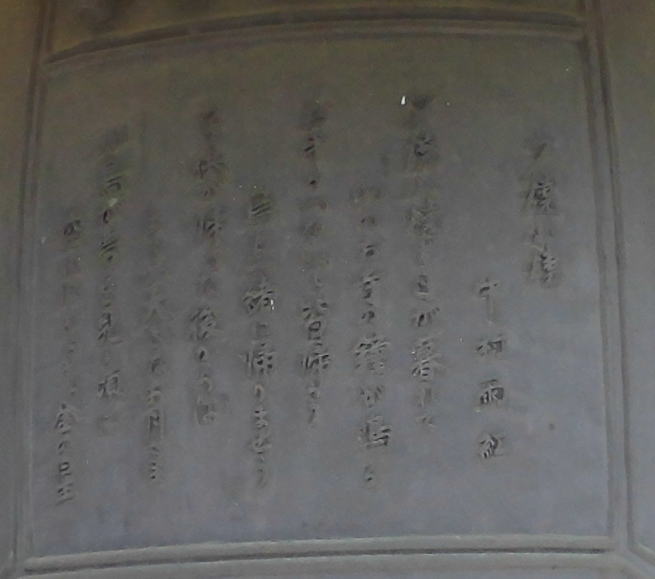 夕焼小焼
中村雨紅
夕焼小焼で日が暮れて
山のお寺の鐘が鳴る
お手々つないで皆帰ろ
烏と一緒に帰りましょう
子供が帰った後からは
円い大きなお月さま
小鳥が夢を見る頃は
空にはきらきら金の星